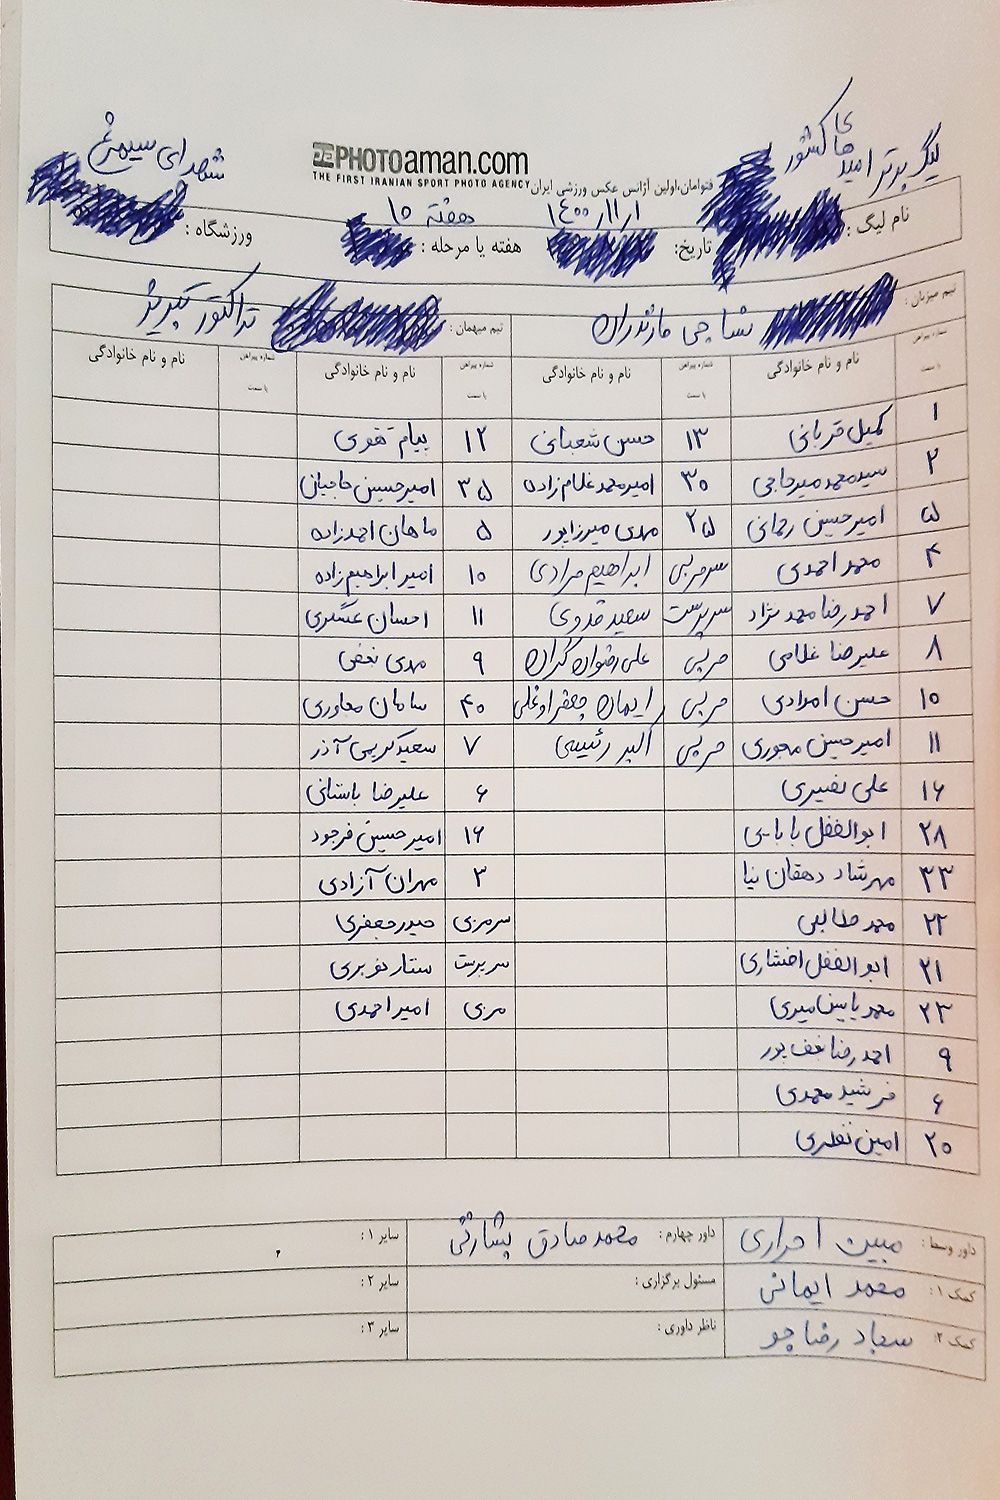 لیگ برتر امیدهای کشور
شهدای سیمرغ
PHOTOaman.com
THE FIRST IRANIAN SPORT PHOTO AGENCY
فتوامان،اولین آژانس عکس ورزشی ایران
نام لیگ :
تاریخ: ۱۴۰۰/۱۱/۱
هفته یا مرحله : هفته ۱۵
ورزشگاه :
تیم میزبان : نساجی مازندران
تیم میهمان : تراکتور تبریز
شماره پیراهن یا سمت نام و نام خانوادگی شماره پیراهن یا سمت نام و نام خانوادگی شماره پیراهن یا سمت نام و نام خانوادگی شماره پیراهن یا سمت نام و نام خانوادگی
۱ کمیل قربانی ۱۳ حسن شعبانی ۱۲ پیام تقوی
۲ سیدمحمد میرحاجی ۳۰ امیرمحمد غلام زاده ۳۵ امیرحسین حاجیان
۵ امیرحسین رحمانی ۲۵ مهدی میرزاپور ۵ ماهان احمدزاده
۴ محمد احمدی سرمربی ابراهیم مرادی ۱۰ امیر ابراهیم زاده
۷ احمدرضا محمدنژاد سرپرست سعید فدوی ۱۱ احسان عسگری
۸ علیرضا غلامی مربی علی رضوان کران ۹ مهدی نجفی
۱۰ حسن امدادی مربی ایمان جعفراوغلی ۴۰ سامان معاوری
۱۱ امیرحسین محوری مربی اکبر رئیسی ۷ سعید کریمی آذر
۱۶ علی نصیری ۶ علیرضا باستانی
۲۸ ابوالفضل بابایی ۱۶ امیرحسین فرجود
۳۳ مهرشاد دهقان نیا ۳ مهران آزادی
۲۲ محمد طالبی سرمربی حیدر جعفری
۲۱ ابوالفضل افشاری سرپرست ستار نوبری
۲۳ محمد یاسین میری مربی امیر احمدی
۹ احمدرضا نجف پور
۶ فرشید محمدی
۲۰ امین نظری
داور وسط : مبین احراری داور چهارم : محمدصادق بشارتی سایر ۱ :
کمک ۱ : محمد ایمانی مسئول برگزاری : سایر ۲ :
کمک ۲ : سجاد رضاجو ناظر داوری : سایر ۳ :